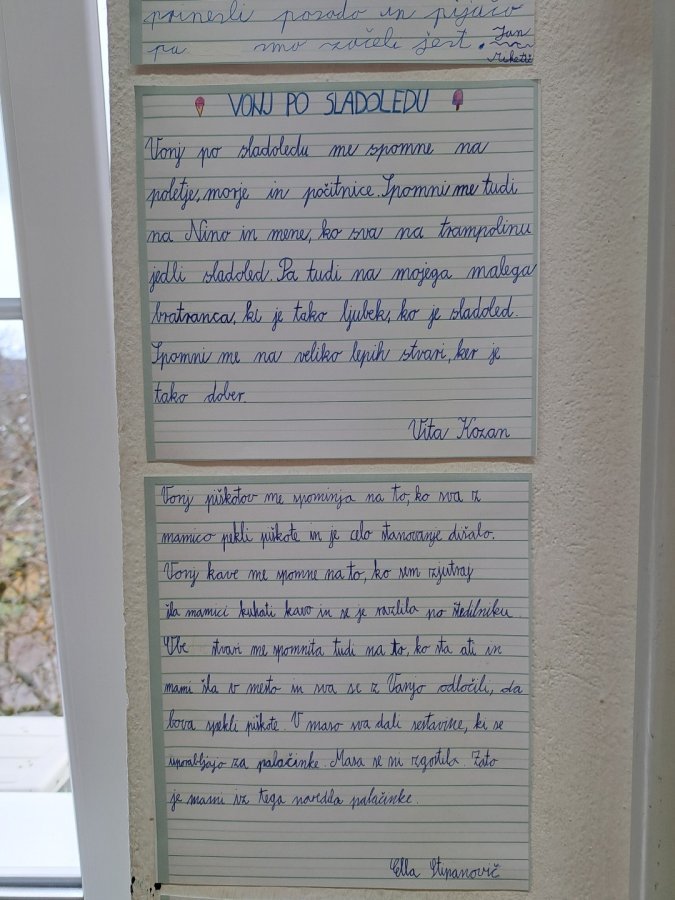 prinesli posodo in pijačo
pa smo začeli jest. Jan
VONJ PO SLADOLEDU
Vonj po sladoledu me spomne na
poletje, morje in počitnice. Spomni me tudi
na Nino in mene, ko sva na trampolinu
jedli sladoled. Pa tudi na mojega malega
bratranca, ki je tako ljubek, ko je sladoled.
Spomni me na veliko lepih stvari, ker je
tako dober.
Vita Kozan
Vonj piškotov me spominja na to, ko sva z
mamico pekli piškote in je celo stanovanje dišalo.
Vonj kave me spomne na to, ko sem zjutraj
šla mamici kuhati kavo in se je razlila po štedilniku.
Obe stvari me spomnita tudi na to, ko sta ati in
mami šla v mesto in sva se z Vanjo odločili, da
bova spekli piškote. V maso sva dali sestavine, ki se
uporabljajo za palačinke. Masa se ni zgostila. Zato
je mami iz tega naredila palačinke.
Ella Stepanovič